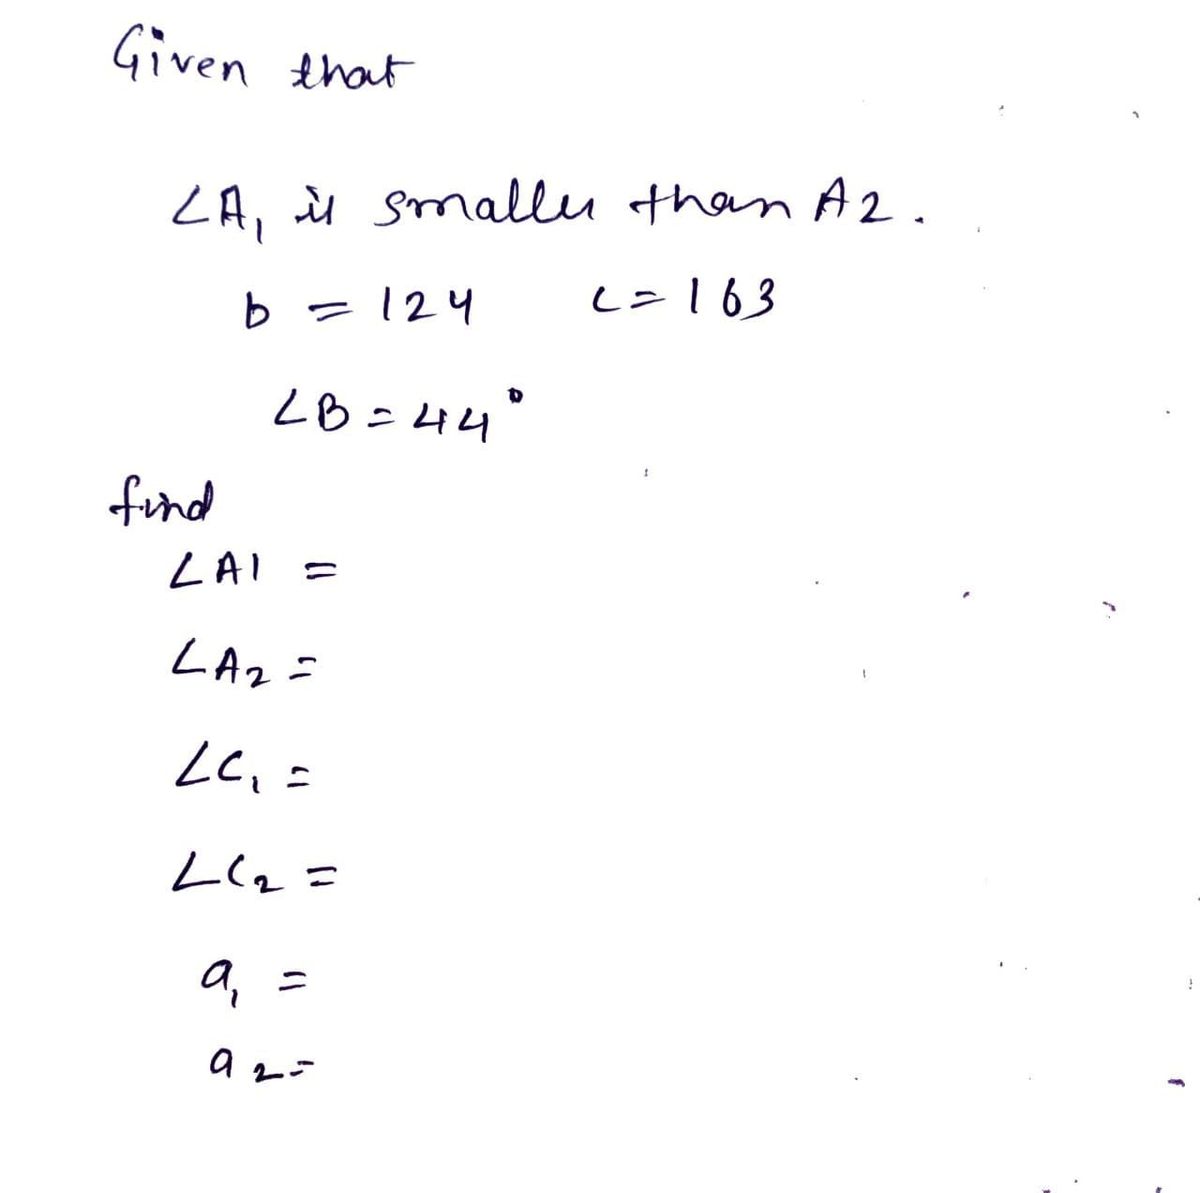 Given that
∠A₁ is smaller than A2.
b = 124 c = 163
∠B = 44°
find
∠A1 =
∠A₂ =
∠C₁ =
∠C₂ =
a₁ =
a₂ =